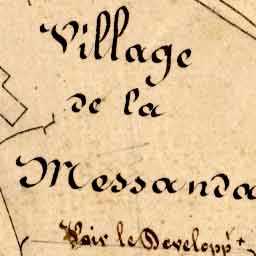 Village
de la
Messanda
Voir le Developp.t